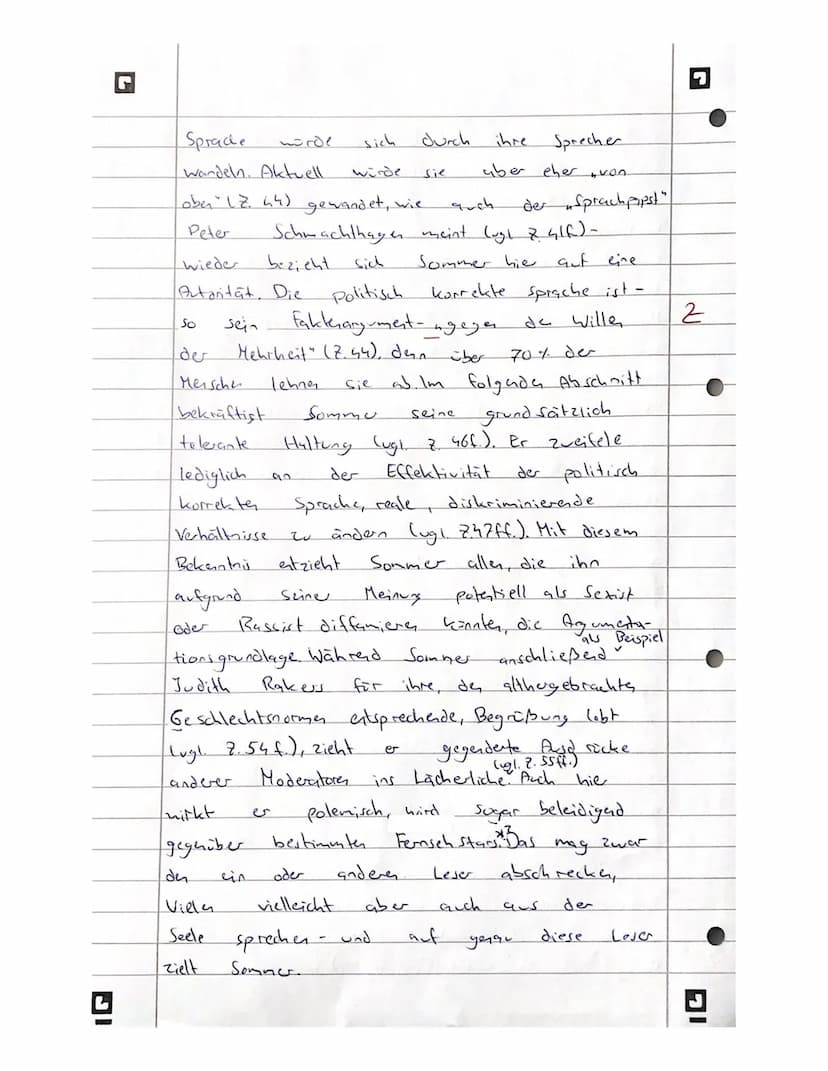 Sprache würde sich durch ihre Sprecher
wandeln. Aktuell würde sie aber eher „von
oben" (Z. 44) gewandet, wie auch der „Sprachpapst"
Peter Schmachthagen meint (vgl. Z. 41f.) -
wieder bezieht sich Sommer hie auf eine
Autorität. Die politisch korrekte Sprache ist -
so sein Faktenargument - „gegen den Willen 2
der Mehrheit" (Z. 44), denn über 70 % der
Menschen lehnen sie ab. Im folgenden Abschnitt
bekräftigt Sommer seine grundsätzlich
tolerante Haltung (vgl. Z. 46f.). Er zweifele
lediglich an der Effektivität der politisch
korrekten Sprache, reale, diskriminierende
Verhältnisse zu ändern (vgl. Z.47ff.). Mit diesem
Bekenntnis entzieht Sommer allen, die ihn
aufgrund seiner Meinung potentiell als Sexist
oder Rassist diffamieren könnten, die Argumenta-
tionsgrundlage. Während Sommer anschließend als Beispiel
Judith Rakers für ihre, den althergebrachten
Geschlechtsnormen entsprechende, Begrüßung lobt
(vgl. Z. 54f.), zieht er gegenderte Ausdrücke
anderer Moderatoren ins Lächerliche (vgl. Z. 55ff.). Auch hier
wirkt er polemisch, wird sogar beleidigend
gegenüber bestimmten Fernsehstars.*3 Das mag zwar
den ein oder anderen Leser abschrecken,
Vielen vielleicht aber auch aus der
Seele sprechen - und auf genau diese Leser
zielt Sommer.